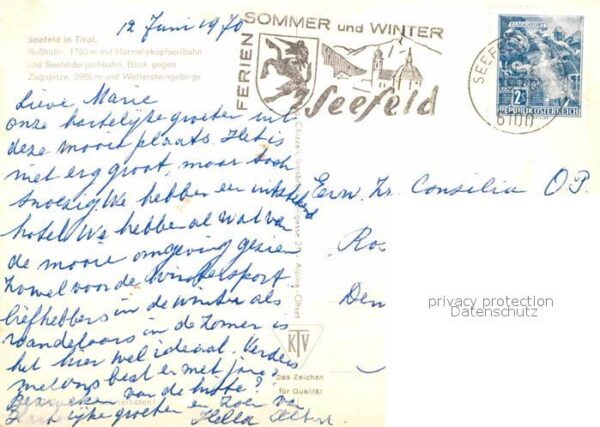 12 Juni 1970
Seefeld in Tirol,
Roßhütte, 1750 m mit Harmelekopfseilbahn
und Seefelderjochbahn, Blick gegen
Zugspitze, 2966 m und Wettersteingebirge
FERIEN
SOMMER und WINTER
Seefeld
SEEF
6100
KLAGENFURT
2S
REPUBLIK ÖSTERREICH
Lieve, Marie
onze hartelijke groeten uit
deze mooie plaats. Het is
niet erg groot, maar toch
snoezig. We hebben een uitstekend
hotel. We hebben al wat van
de mooie omgeving gezien
Zowel voor de Wintersport
liefhebbers in de winter als
wandelaars in de zomer is
het hier wel ideaal. Verders
met ons best er met jou?
van de hitte?
Hartelijke groeten en zoen van
Hella
Eerw. Zr. Consilia O.P.
Ros
Den
privacy protection
Datenschutz
Alpina-Offset
KTV
Das Zeichen
für Qualität